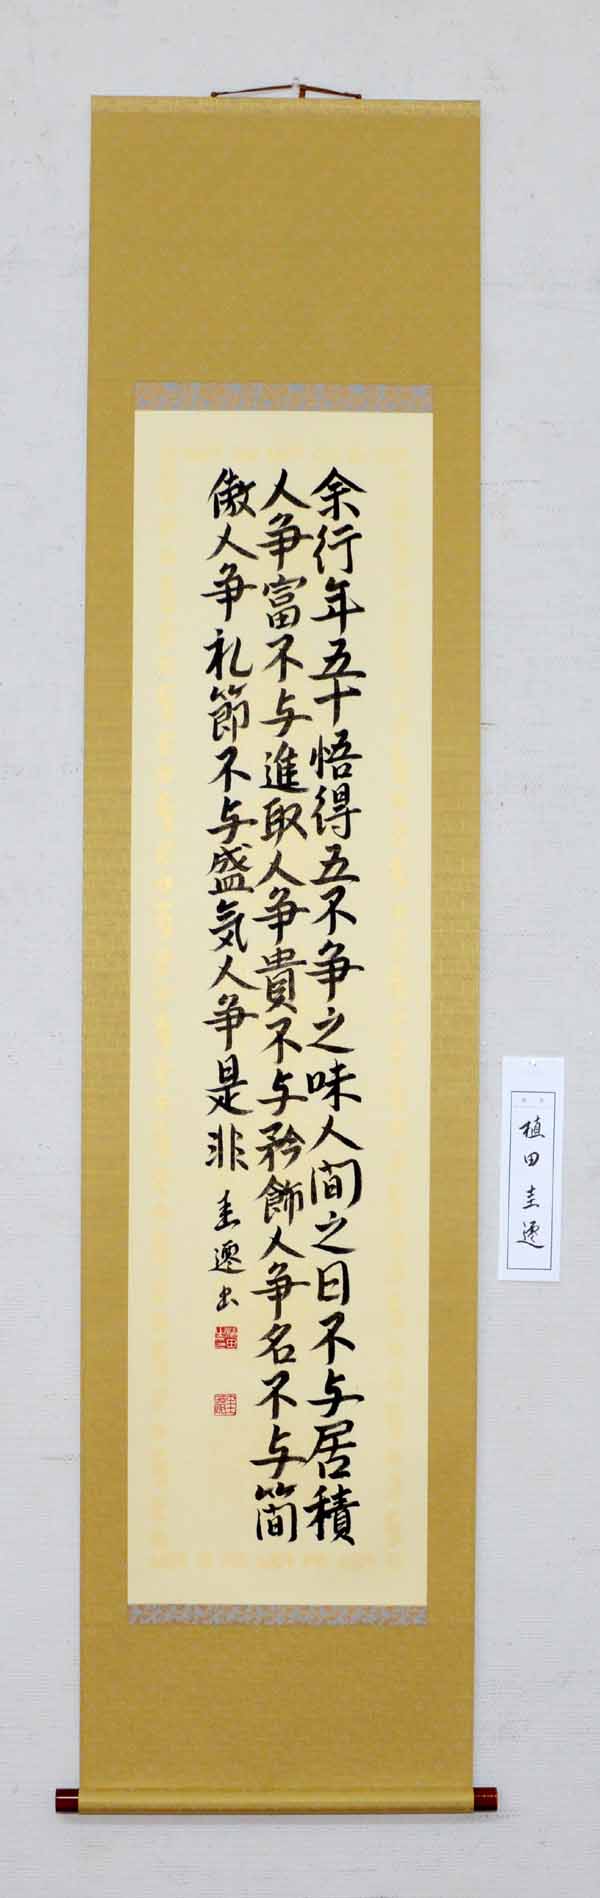 余行年五十悟得五不争之味人間之日不与居積
人争富不与進取人争貴不与矜飾人争名不与簡
傲人争礼節不与盛気人争是非 圭邐出
植田圭邐